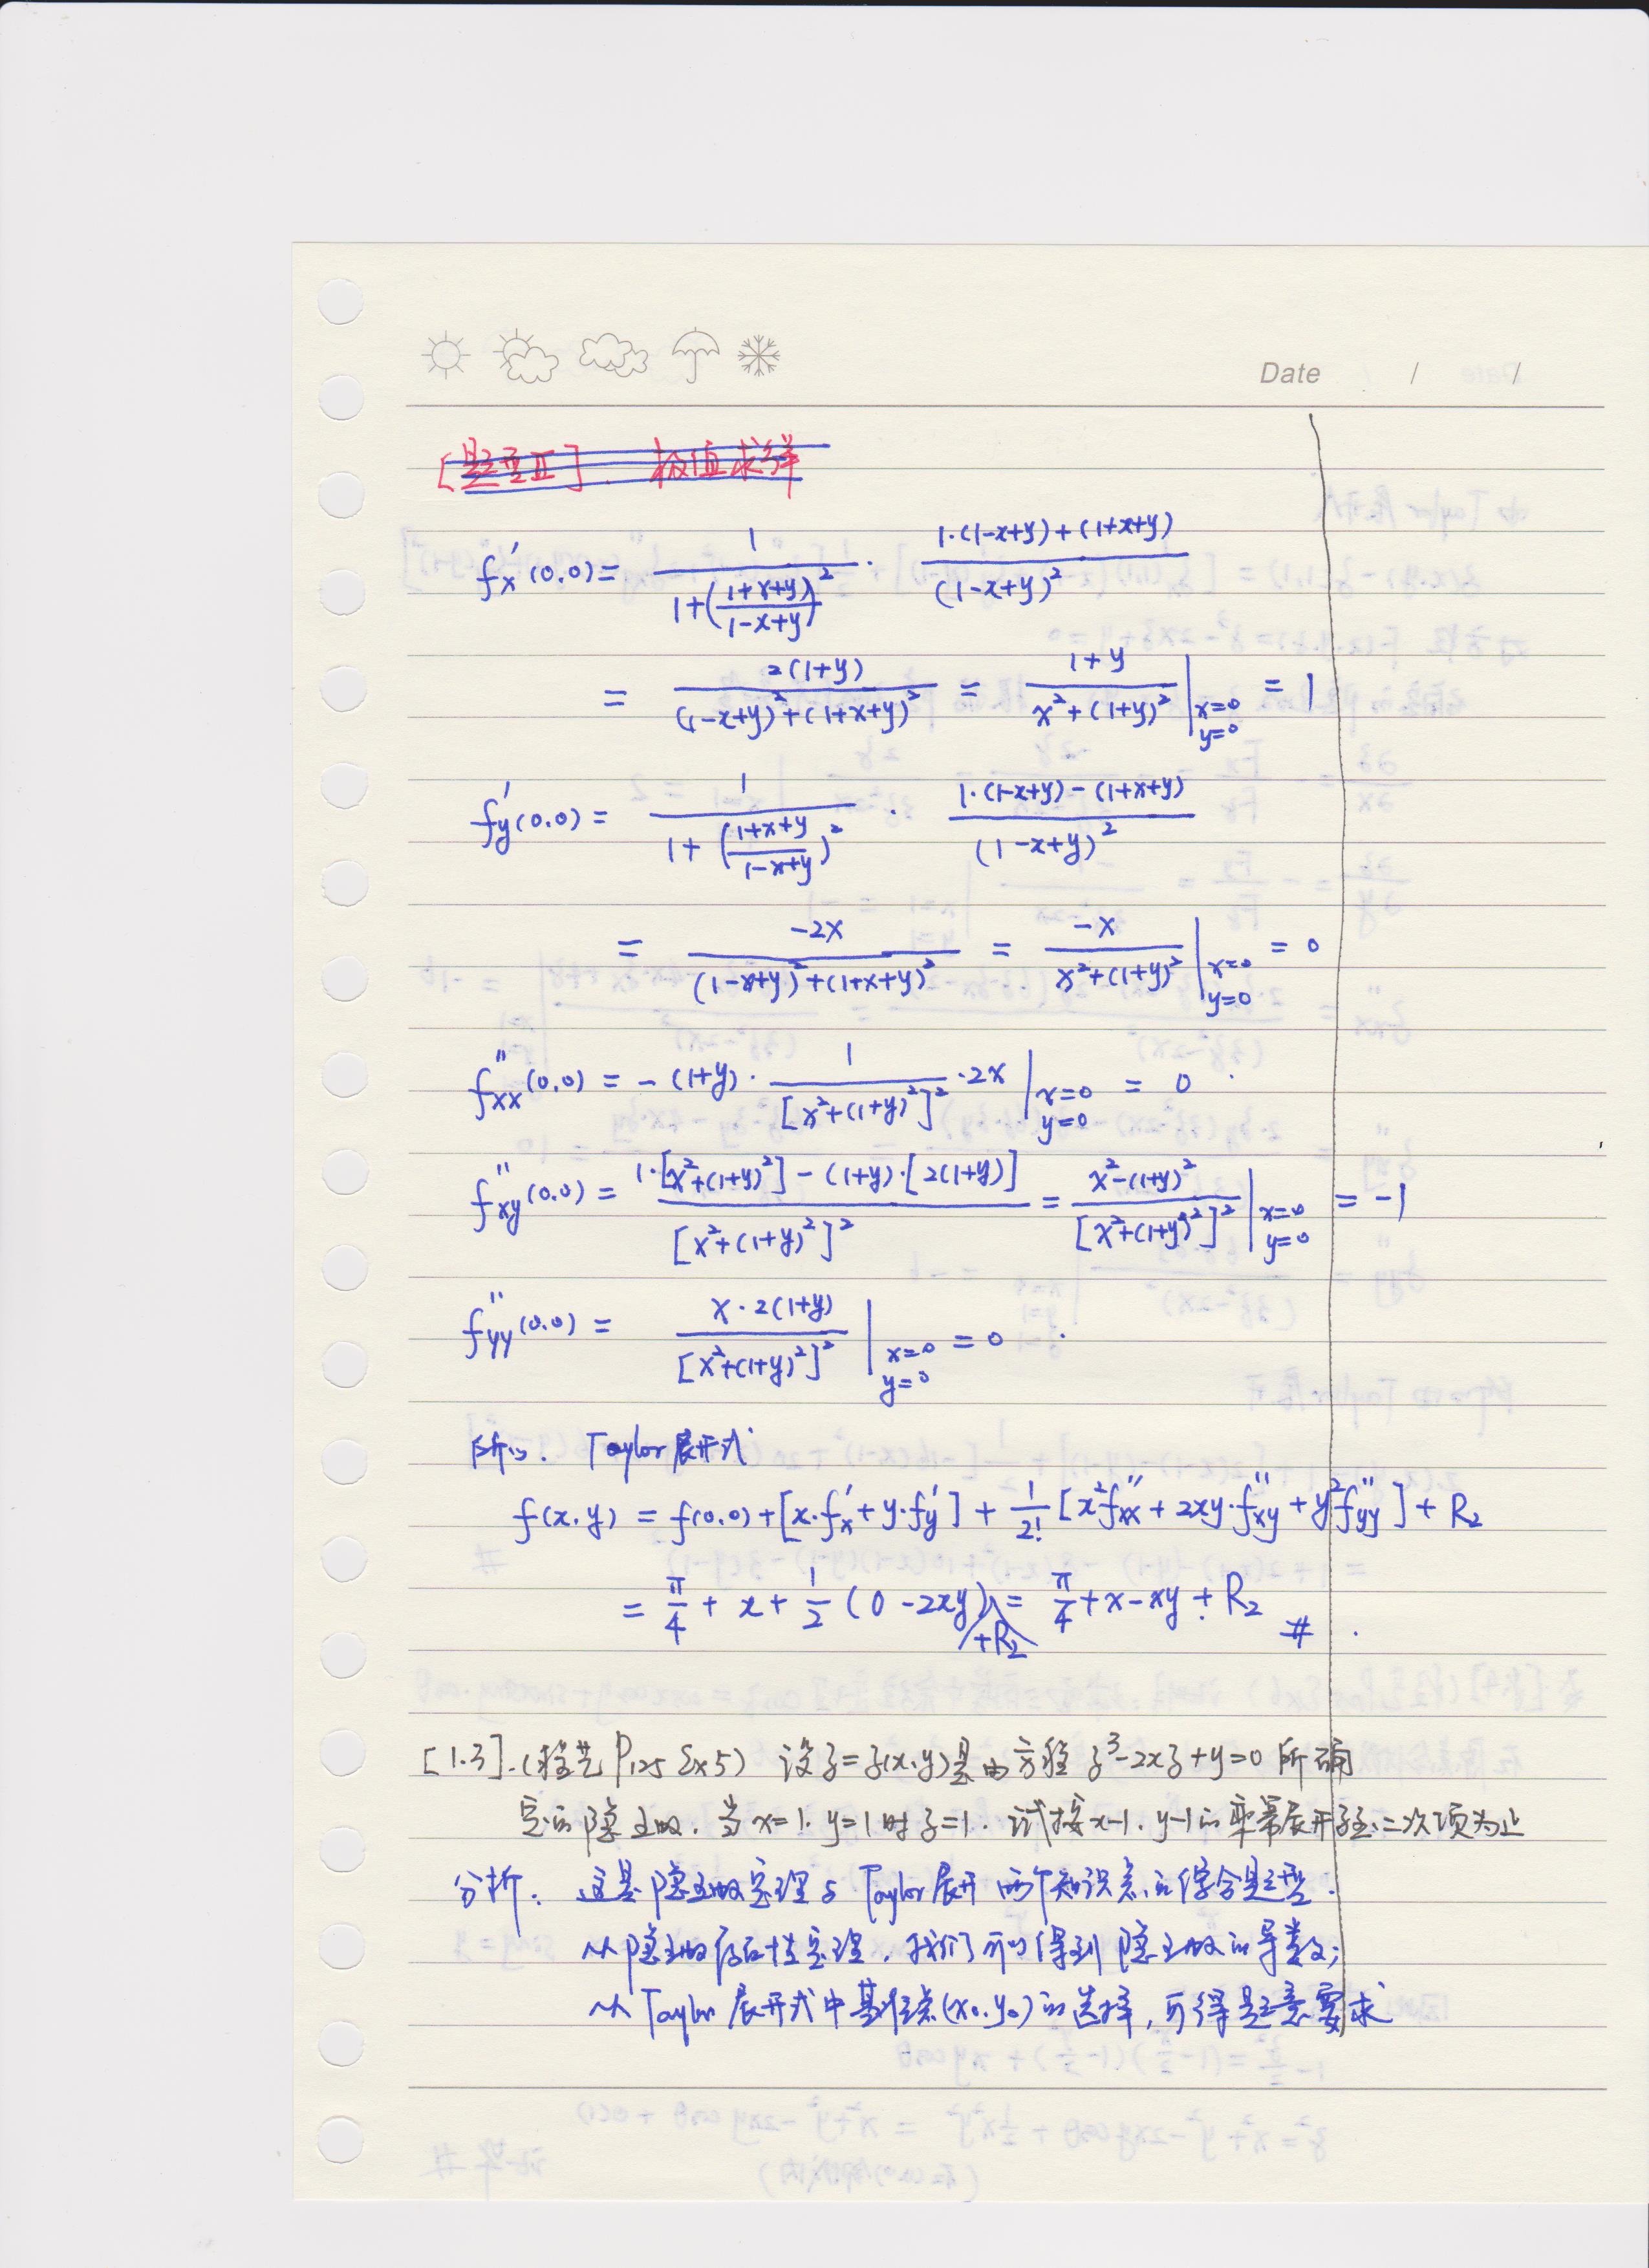 Date / /
[题型II]. 极值求解
f'x(0,0) = 1/(1+((1+x+y)/(1-x+y))²) · (1·(1-x+y)+(1+x+y))/(1-x+y)²
= 2(1+y)/((1-x+y)²+(1+x+y)²) = (1+y)/(x²+(1+y)²) |x=0 y=0 = 1
f'y(0,0) = 1/(1+((1+x+y)/(1-x+y))²) · (1·(1-x+y)-(1+x+y))/(1-x+y)²
= -2x/((1-x+y)²+(1+x+y)²) = -x/(x²+(1+y)²) |x=0 y=0 = 0
f''xx(0,0) = -(1+y)· 1/[x²+(1+y)²]² ·2x |x=0 y=0 = 0
f''xy(0,0) = (1·[x²+(1+y)²]-(1+y)·[2(1+y)])/[x²+(1+y)²]² = (x²-(1+y)²)/[x²+(1+y)²]² |x=0 y=0 = -1
f''yy(0,0) = x·2(1+y)/[x²+(1+y)²]² |x=0 y=0 = 0
所以. Taylor展开式
f(x,y) = f(0,0)+[x·f'x+y·f'y]+1/2! [x²f''xx+2xy·f''xy+y²f''yy]+R₂
= π/4 + x + 1/2 (0-2xy) +R₂ = π/4+x-xy+R₂ #
[1.3].(程艺 P125 Ex5) 设z=z(x,y)是由方程z³-2xz+y=0 所确
定的隐函数. 当x=1. y=1时z=1. 试按x-1. y-1的乘幂展开至二次项为止
分析: 这是隐函数定理与Taylor展开两个知识点的综合题型.
从隐函数存在性定理, 我们可以得到隐函数的导数;
从Taylor展开式中基准点(x₀,y₀)的选择, 可得题意要求